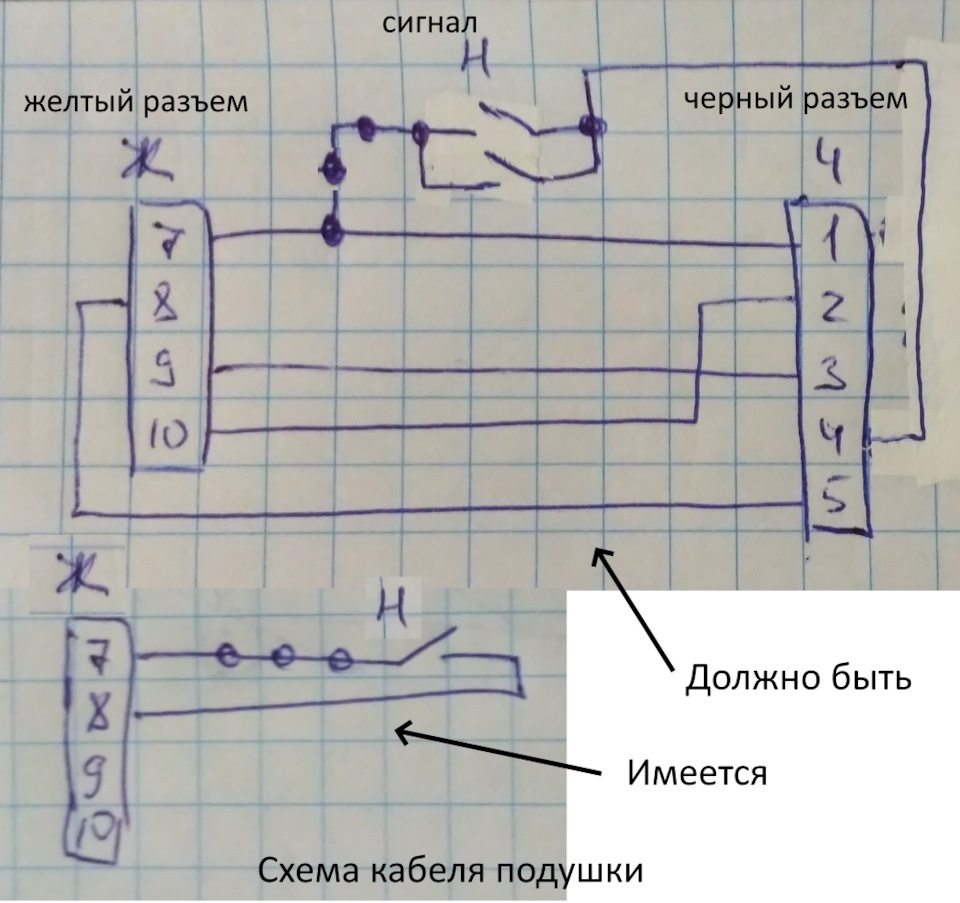 сигнал
Н
желтый разъем
черный разъем
Ж
Ч
7
1
8
2
9
3
10
4
5
Ж
Н
7
8
9
10
Должно быть
Имеется
Схема кабеля подушки